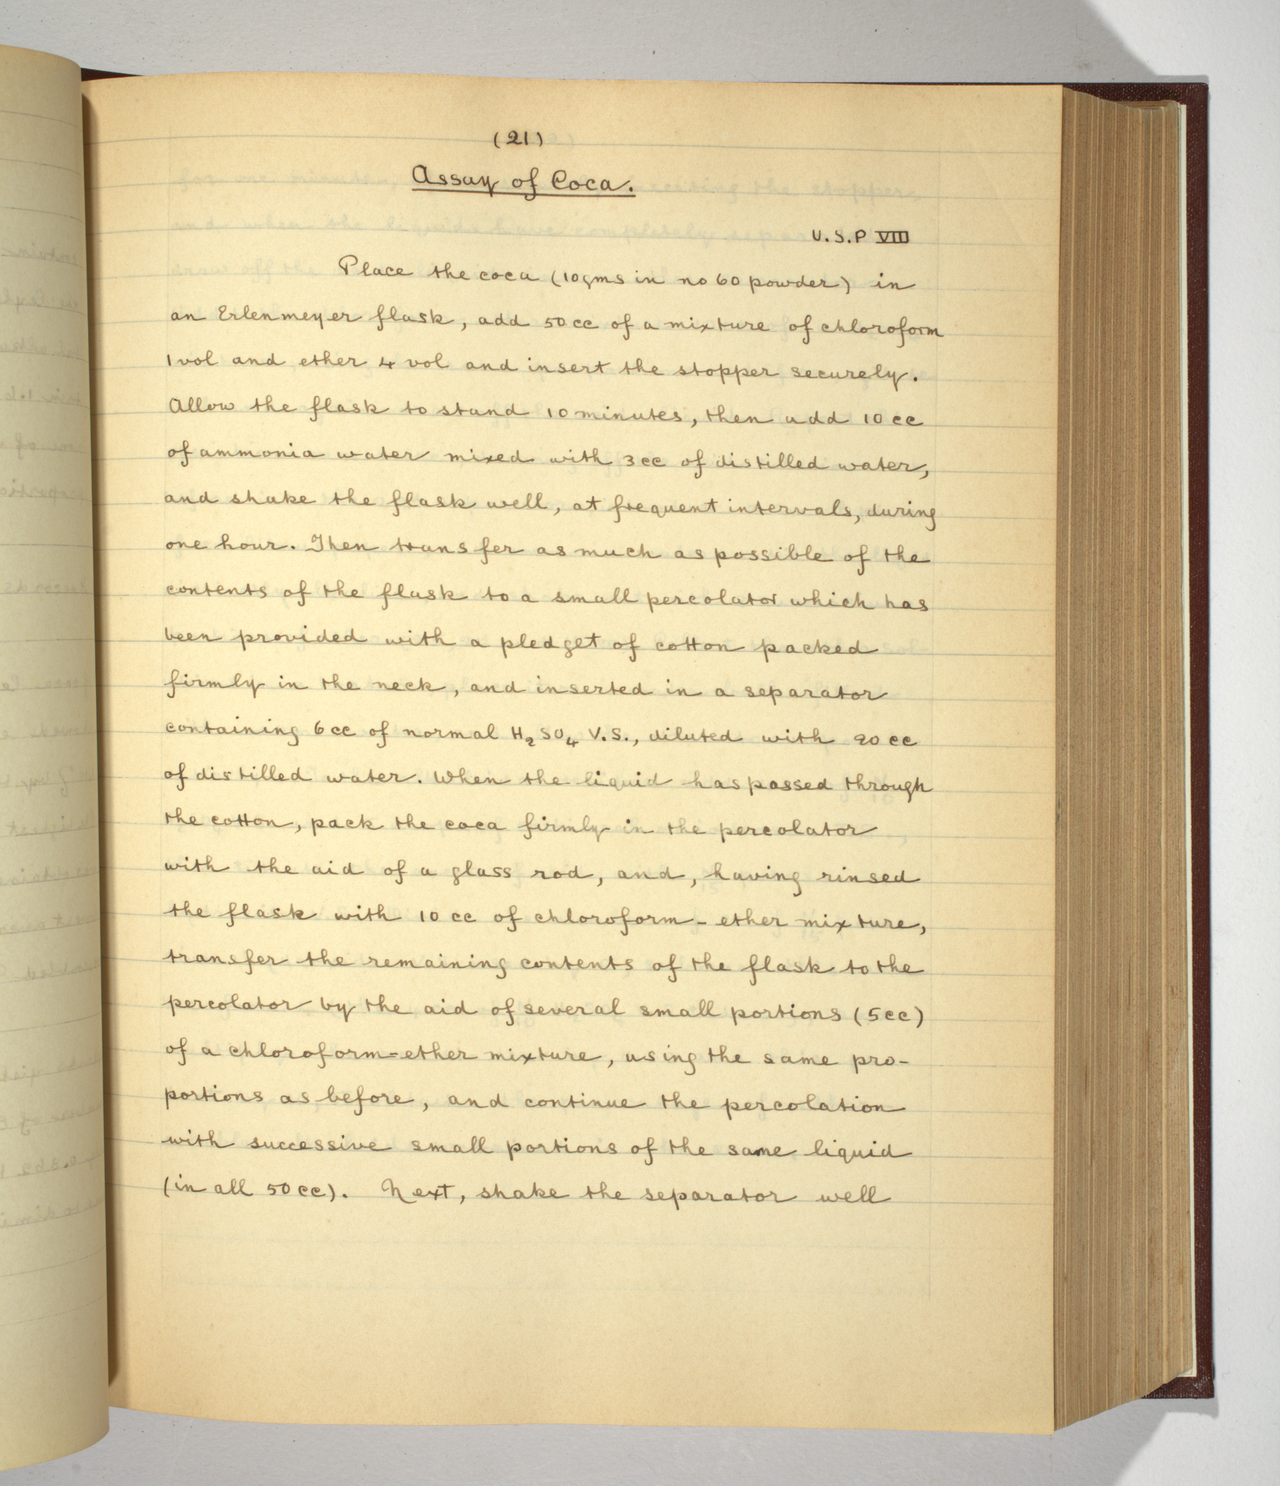 (21)
Assay of Coca.
U.S.P VIII
Place the coca (10gms in no 60 powder) in
an Erlenmeyer flask, add 50cc of a mixture of chloroform
1 vol and ether 4 vol and insert the stopper securely.
Allow the flask to stand 10 minutes, then add 10cc
of ammonia water mixed with 3cc of distilled water,
and shake the flask well, at frequent intervals, during
one hour. Then transfer as much as possible of the
contents of the flask to a small percolator which has
been provided with a pledget of cotton packed
firmly in the neck, and inserted in a separator
containing 6cc of normal H2SO4 V.S., diluted with 20cc
of distilled water. When the liquid has passed through
the cotton, pack the coca firmly in the percolator
with the aid of a glass rod, and, having rinsed
the flask with 10 cc of chloroform-ether mixture,
transfer the remaining contents of the flask to the
percolator by the aid of several small portions (5cc)
of a chloroform=ether mixture, using the same pro-
portions as before, and continue the percolation
with successive small portions of the same liquid
(in all 50cc). Next, shake the separator well